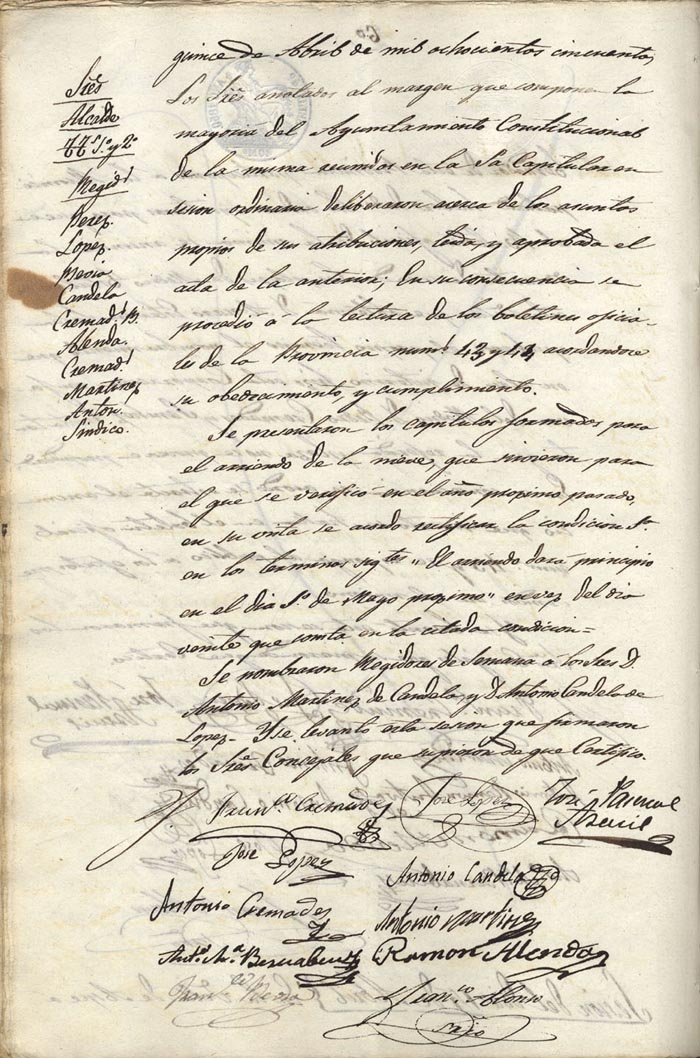 quince de Abril de mil ochocientos cincuenta,
Sres
Alcalde
Ttes 1º y 2º
Regids
Perez
Lopez
Mecia
Candela
Cremads B.
Alenda.
Cremads
Martinez
Anton.
Sindico.
Los Sres anotados al margen que componen la
mayoria del Ayuntamiento Constitucional
de la misma reunidos en la Sa Capitular en
sesion ordinaria deliberaron acerca de los asuntos
propios de sus atribuciones, leida, y aprobada el
acta de la anterior; En su consecuencia se
procedió á la lectura de los boletines oficia-
les de la Provincia nums 42 y 43, acordandose
su obedecimiento, y cumplimiento.
Se presentaron los capitulos formados para
el arriendo de la nieve, que sirvieron para
el que se verificó en el año proximo pasado,
en su vista se acordo rectificar la condicion 1ª
en los terminos sigtes "El arriendo dara principio
en el dia 1º de Mayo proximo" en vez del dia
veinte que consta en la citada condicion=
Se nombraron Regidores de Semana a los Sres D.
Antonio Martinez de Candela, y D. Antonio Candela de
Lopez- Y se levanto esta sesion que firmaron
los Sres Concejales que supieron de que Certifico.
Franco Cremades
Jose Lopez
José Pascual
Jose Lopez
Antonio Candela
Antonio Cremades
Antonio Martinez
Anto Ma Bernabeu
Ramon Alenda
Franco Alonso
Srio